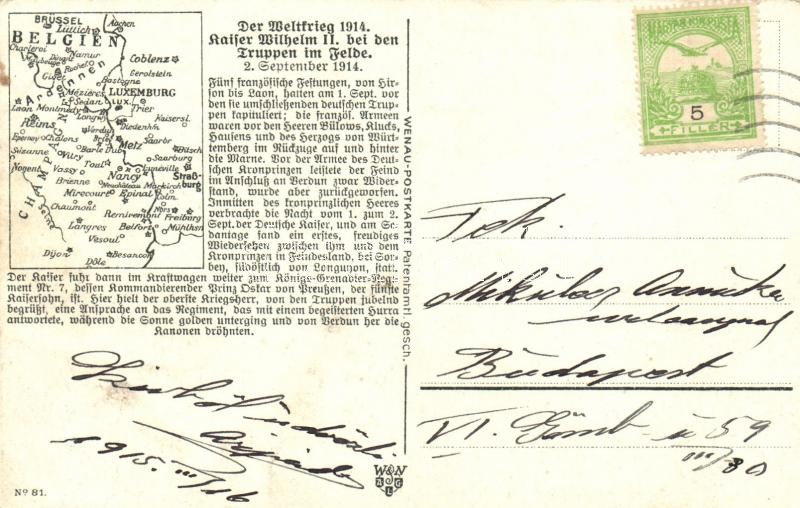 BRÜSSEL
Aachen
Lüttich
BELGIEN
Charleroi
Namur
Maubeuge
Dinant
Coblenz
Rochef.
Givet
Gerolstein
Bastogne
Ardennen
Mézières
LUXEMBURG
Sedan
LUX.
Trier
Laon
Montmédy
Longwy
Kaisersl.
Reims
Verdun
Diedenhfn
Epernay
Châlons
Metz
Saarbr
Bitsch
Suzanne
Vitry
Bar le Duc
Saarburg
Nogent
Toul
Vassy
Nancy
Luneville
Straßburg
Brienne
Neufchâteau
Markirch
Mirecourt
Epinal
Colm.
CHAMPAGNE
Chaumont
Seine
Remiremont
Freiburg
Langres
Belfort
Mühlhsn
Vesoul
Dijon
Besançon
Dôle
Der Weltkrieg 1914.
Kaiser Wilhelm II. bei den
Truppen im Felde.
2. September 1914.
Fünf französische Festungen, von Hir-
son bis Laon, hatten am 1. Sept. vor
den sie umschließenden deutschen Trup-
pen kapituliert; die französ. Armeen
waren vor den Heeren Bülows, Klucks,
Hausens und des Herzogs von Würt-
temberg im Rückzuge auf und hinter
die Marne. Vor der Armee des Deut-
schen Kronprinzen leistete der Feind
im Anschluß an Verdun zwar Wider-
stand, wurde aber zurückgeworfen.
Inmitten des kronprinzlichen Heeres
verbrachte die Nacht vom 1. zum 2.
Sept. der Deutsche Kaiser, und am Se-
dantage fand ein erstes, freudiges
Wiedersehen zwischen ihm und dem
Kronprinzen in Feindesland, bei Sor-
bey, südöstlich von Longuyon, statt.
Der Kaiser fuhr dann im Kraftwagen weiter zum Königs-Grenadier-Regi-
ment Nr. 7, dessen Kommandierender Prinz Oskar von Preußen, der fünfte
Kaisersohn, ist. Hier hielt der oberste Kriegsherr, von den Truppen jubelnd
begrüßt, eine Ansprache an das Regiment, das mit einem begeisterten Hurra
antwortete, während die Sonne golden unterging und von Verdun her die
Kanonen dröhnten.
WENAU-POSTKARTE Patentamtl. gesch.
MAGYAR KIR. POSTA
5
FILLÉR
Tek.
Mikulas
Budapest
VI. Gömb u 59
III/30
1915. III/16
W&N
A G
L
Nº 81.